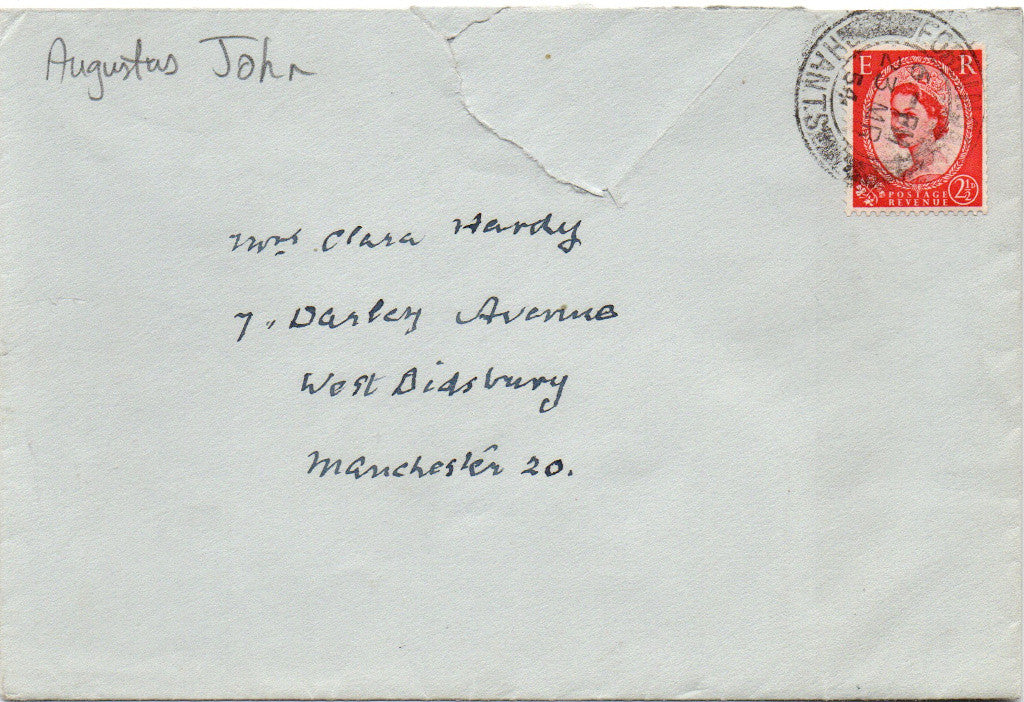 Augustus John
E R
POSTAGE
REVENUE
2½D
HANTS
54
Mrs Clara Hardy
7, Darley Avenue
West Didsbury
Manchester 20.